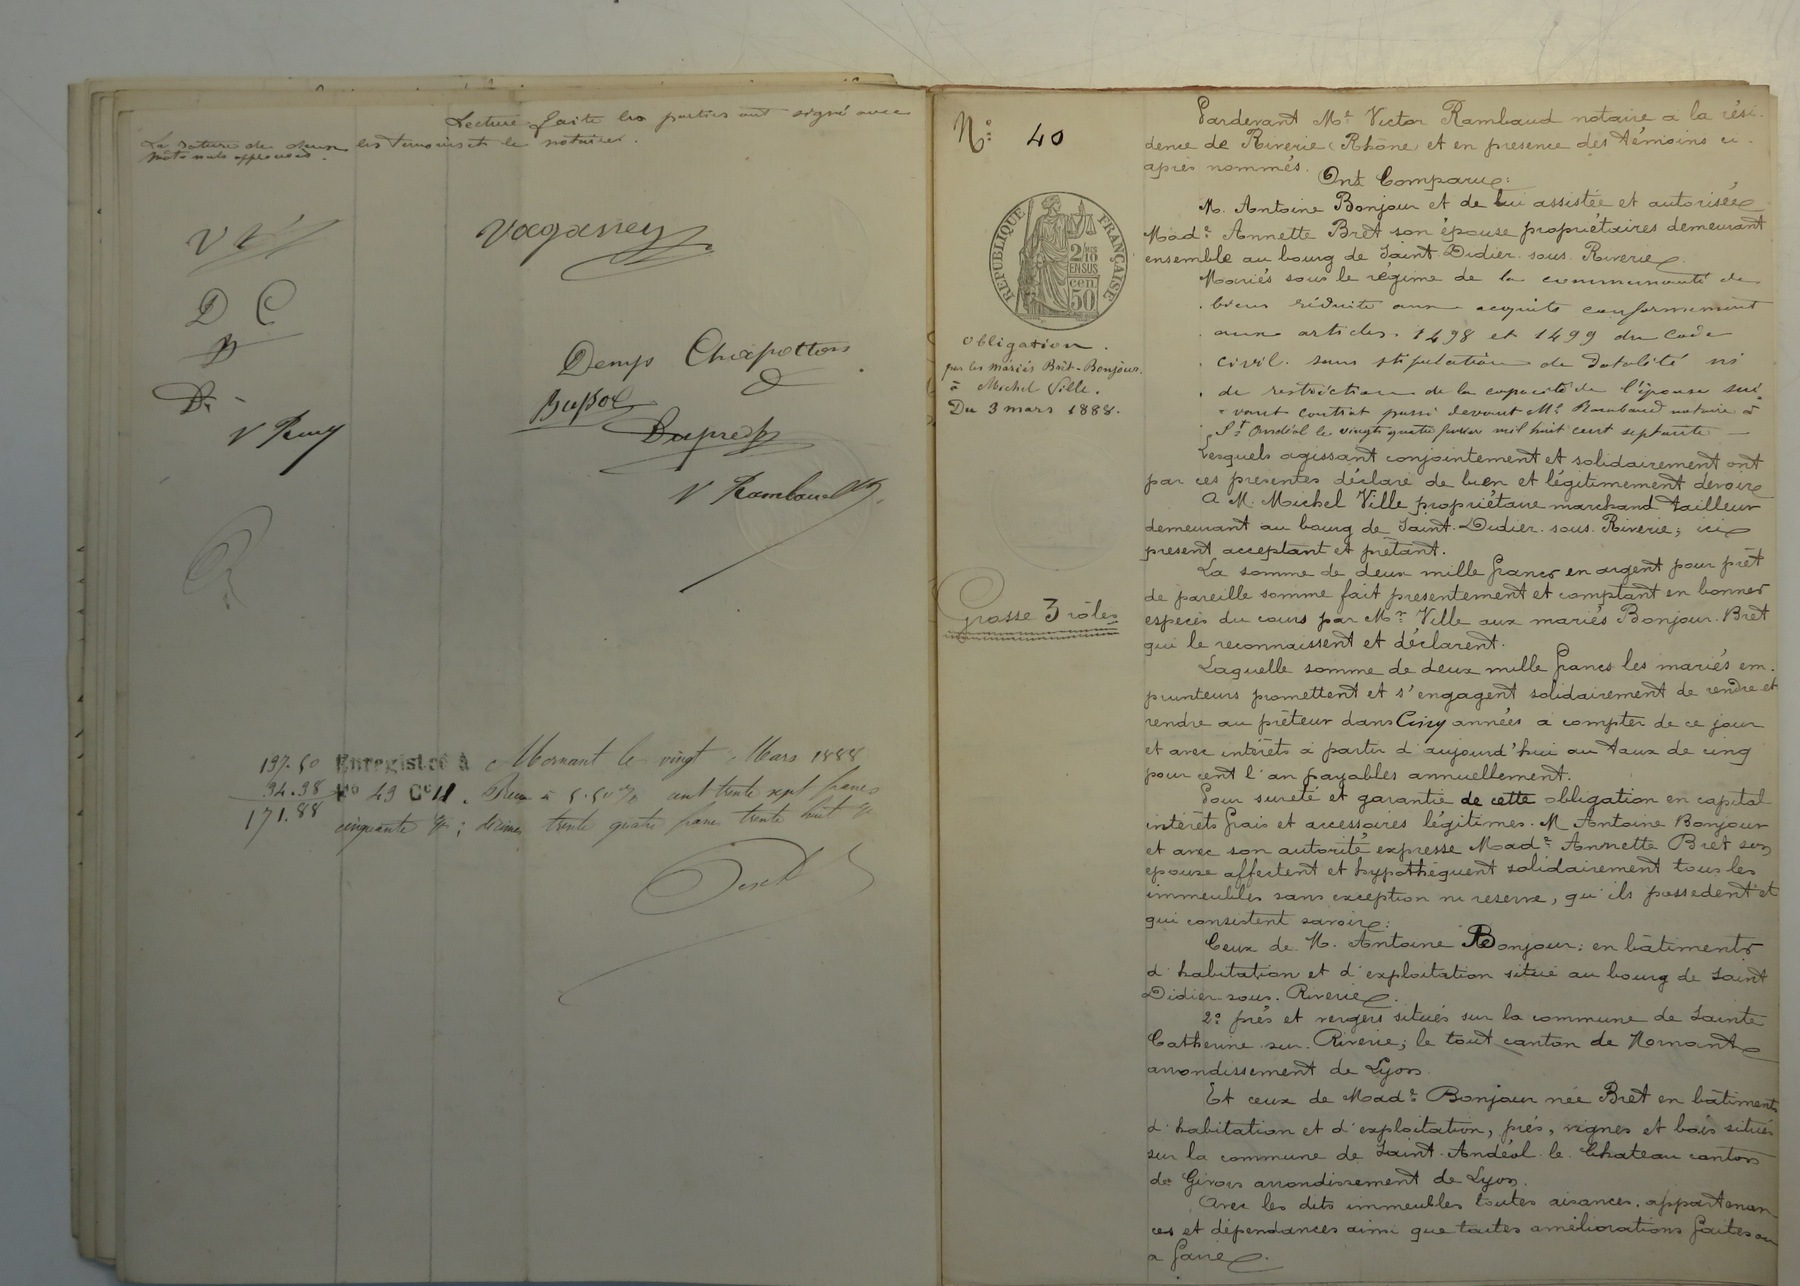 Lecture faite les parties ont signé avec
les temoins et le notaire.
La rature de deux
mots nuls approuvée.
Vagasney
D C
Denys Chapotton
Dupred
V Rambaud
197.50 Enregistré à Mornant le vingt Mars 1888
34.38 No 49 Ce 11. Reçu à 5.50 % cent trente sept francs
171.88 cinquante ; décimes trente quatre francs trente huit
No. 40
REPUBLIQUE FRANÇAISE
2/10 EN SUS
50 cen
Obligation.
par les mariés Brêt-Bonjour
à Michel Ville.
Du 3 mars 1888.
Grosse 3 rôles
Pardevant Me Victor Rambaud notaire a la rési-
dence de Riverie (Rhône) et en presence des témoins ci-
après nommés.
Ont Comparu:
M. Antoine Bonjour et de lui assistée et autorisée
Made Annette Brêt son épouse propriétaires demeurant
ensemble au bourg de Saint-Didier-sous-Riverie
Mariés sous le régime de la communauté de
biens réduite aux acquits conformément
aux articles 1498 et 1499 du Code
civil sans stipulation de dotalité ni
de restriction de la capacité de l'épouse sui-
vant contrat passé devant Me Rambaud notaire à
St Andéol le vingt quatre fevrier mil huit cent septante
Lesquels agissant conjointement et solidairement ont
par ces présentes déclaré de bien et légitimement devoir
A M. Michel Ville propriétaire marchand tailleur
demeurant au bourg de Saint-Didier-sous-Riverie; ici
présent acceptant et prêtant.
La somme de deux mille francs en argent pour prêt
de pareille somme fait presentement et comptant en bonnes
espèces du cours par Mr Ville aux mariés Bonjour-Brêt
qui le reconnaissent et déclarent.
Laquelle somme de deux mille francs les mariés em-
prunteurs promettent et s'engagent solidairement de rendre et
rendre au prêteur dans Cinq années à compter de ce jour
et avec intérêts à partir d'aujourd'hui au taux de cinq
pour cent l'an payables annuellement.
Pour sureté et garantie de cette obligation en capital
intérêts frais et accessoires légitimes. M Antoine Bonjour
et avec son autorité expresse Made Annette Brêt son
épouse affectent et hypothèquent solidairement tous les
immeubles sans exception ni reserve, qu'ils possedent et
qui consistent savoir:
Ceux de M. Antoine Bonjour: en bâtiments
d'habitation et d'exploitation situé au bourg de Saint
Didier-sous-Riverie.
2o prés et vergers situés sur la commune de Sainte
Catherine-sur-Riverie; le tout canton de Mornant
arrondissement de Lyon.
Et ceux de Made Bonjour née Brêt en bâtiments
d'habitation et d'exploitation, prés, vignes et bois situés
sur la commune de Saint-Andéol-le-Chateau canton
de Givors arrondissement de Lyon.
Avec les dits immeubles toutes aisances, appartenan-
ces et dépendances ainsi que toutes améliorations faites ou
a faire.